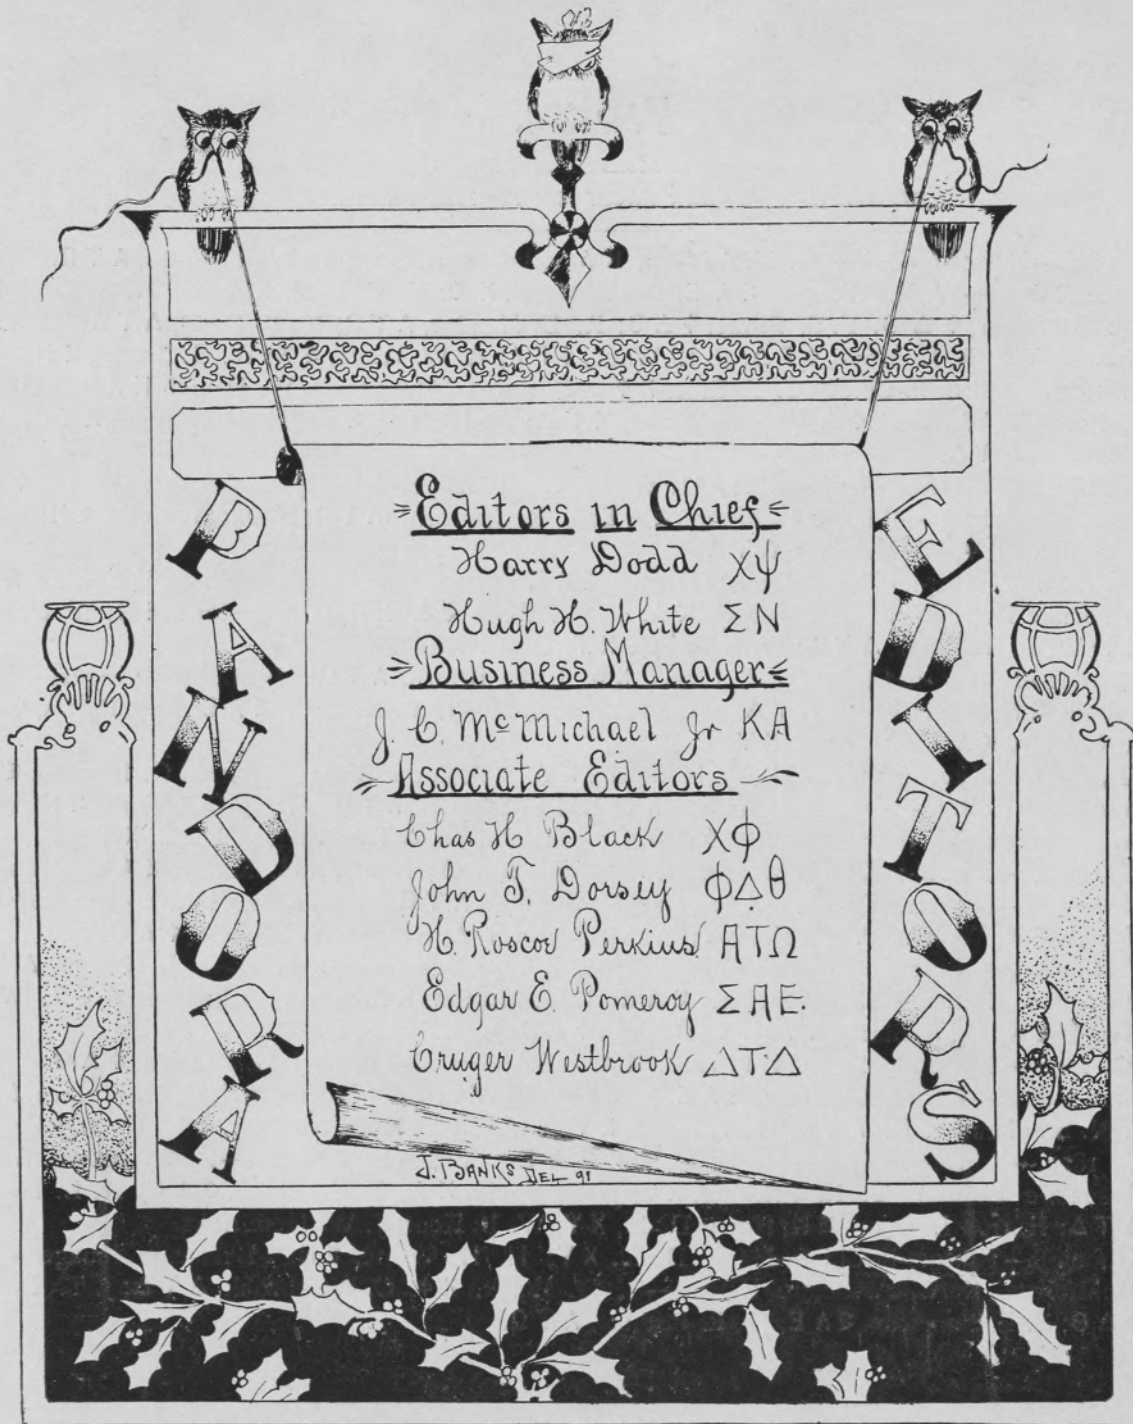 PANDORA
EDITORS
Editors in Chief
Harry Dodd ΧΨ
Hugh H. White ΣΝ
Business Manager
J. C. McMichael Jr ΚΑ
Associate Editors
Chas H Black ΧΦ
John T. Dorsey ΦΔΘ
H. Roscoe Perkins ΑΤΩ
Edgar E. Pomeroy ΣΑΕ.
Cruger Westbrook ΔΤΔ
J. BANKS DEL 91